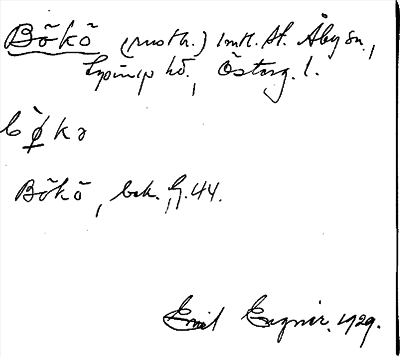 Bökö (moth.) Imtl. St. Åby sn.,
Lysings hd., Östergl.
bø̀kə
Bökö, bek. G. 44.
Emil Eegnér. 1929.